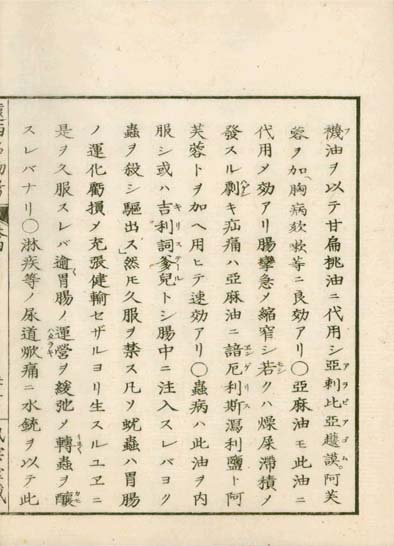 機油ヲ以テ甘扁桃油ニ代用シ亞剌比亞護謨。阿芙
蓉ヲ加ヘ胸病欬嗽等ニ良効アリ〇亞麻油モ此油ニ
代用メ効アリ腸攣急メ縮窄シ若クハ燥屎滯積ノ
發スル劇キ疝痛ハ亞麻油ニ諳厄利斯瀉利鹽ト阿
芙蓉トヲ加ヘ用ヒテ速効アリ〇蟲病ハ此油ヲ内
服シ或ハ吉利詞爹兒トシ腸中ニ注入スレバヨク
蟲ヲ殺シ驅出ス然モ久服ヲ禁ス凡ソ蚘蟲ハ胃腸
ノ運化虧損メ充張健輸セザルヨリ生スルユヱニ
是ヲ久服スレバ逾胃腸ノ運營ヲ緩弛メ轉蟲ヲ釀
スレバナリ〇淋疾等ノ尿道焮痛ニ水銃ヲ以テ此